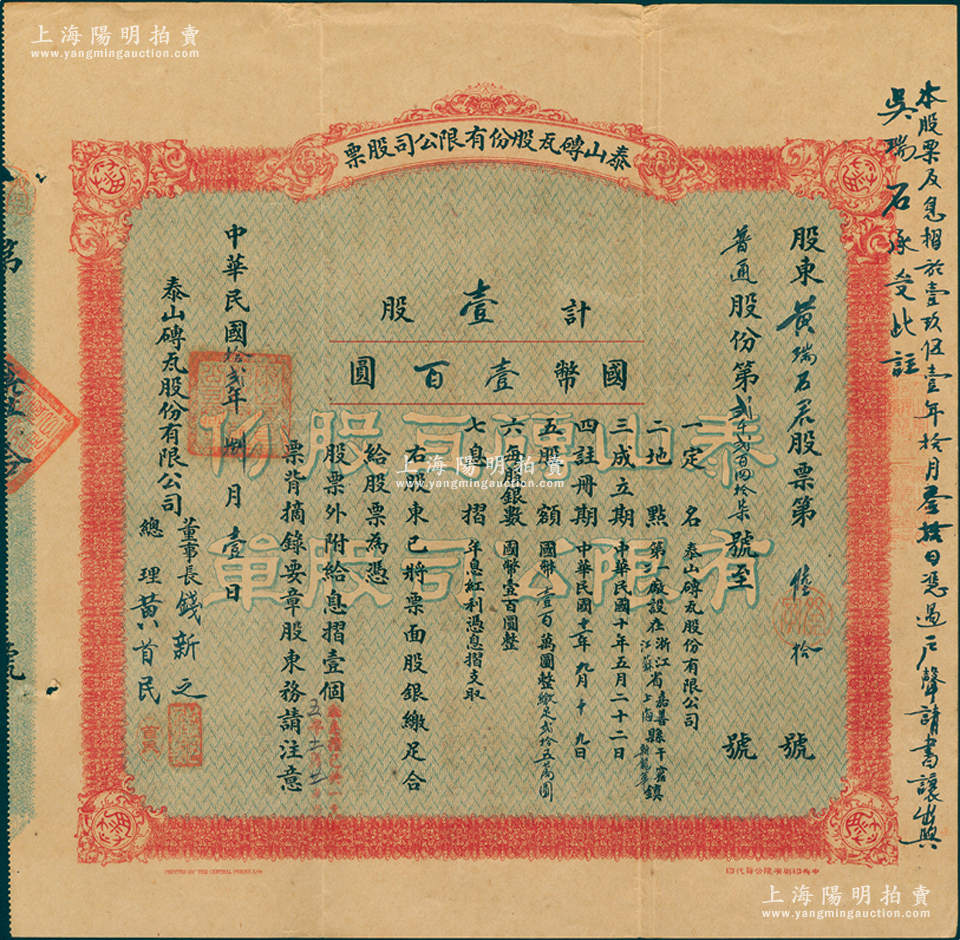 上海陽明拍賣
www.yangmingauction.com
本股票及息摺於壹玖伍壹年拾月叁拾日憑過戶聲請書讓與
吳瑞石承受此註
泰山磚瓦股份有限公司股票
股東黃瑞石君股票第 陸拾 號
普通股份第貳千貳百四拾柒號至 號
計壹股
國幣壹百圓
一定名 泰山磚瓦股份有限公司
二地點 第一廠設在浙江省嘉善縣干窰鎮
第二廠設在江蘇省上海縣新龍華鎮
三成立期 中華民國十年五月二十二日
四註冊期 中華民國十一年九月十九日
五股額 國幣壹百萬圓整繳足貳拾五萬圓
六每股銀數 國幣壹百圓整
七息摺 年息紅利憑息摺支取
右股東已將票面股銀繳足合
給股票為憑
股票外附給息摺壹個
票背摘錄要章股東務請注意
中華民國拾貳年捌月壹日
泰山磚瓦股份有限公司
董事長錢新之
總理黃首民
泰山磚瓦股份
有限公司股單
上海陽明拍賣
www.yangmingauction.com
PRINTED BY THE CENTRAL PRESS, LTD
上海陽明拍賣
www.yangmingauction.com